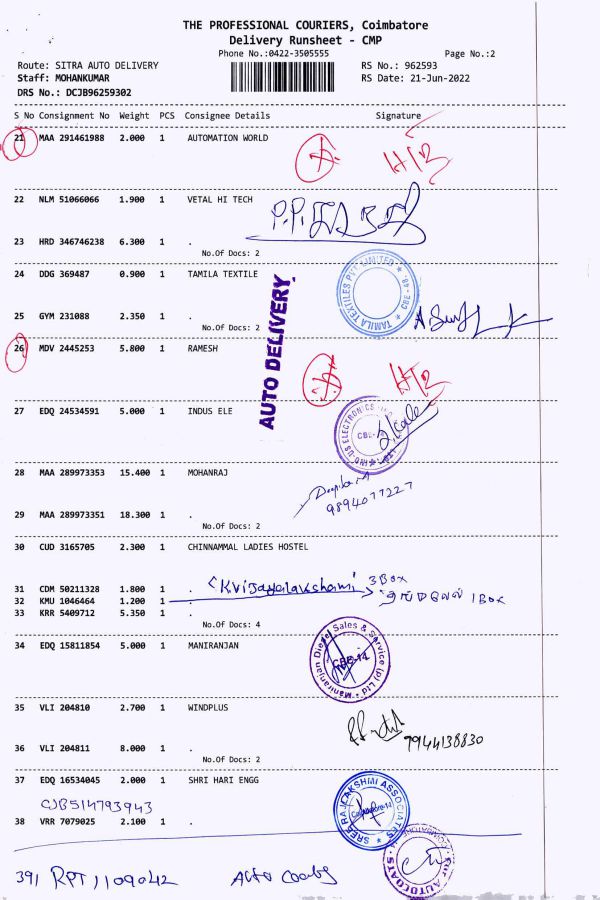 THE PROFESSIONAL COURIERS, Coimbatore
Delivery Runsheet - CMP
Phone No.:0422-3505555
Page No.:2
Route: SITRA AUTO DELIVERY
RS No.: 962593
Staff: MOHANKUMAR
RS Date: 21-Jun-2022
DRS No.: DCJB96259302
S No Consignment No Weight PCS Consignee Details Signature
21 MAA 291461988 2.000 1 AUTOMATION WORLD
22 NLM 51066066 1.900 1 VETAL HI TECH
23 HRD 346746238 6.300 1 .
No.Of Docs: 2
24 DDG 369487 0.900 1 TAMILA TEXTILE
TAMILA TEXTILES PVT LIMITED
25 GYM 231088 2.350 1 .
No.Of Docs: 2
AUTO DELIVERY
26 MDV 2445253 5.800 1 RAMESH
27 EDQ 24534591 5.000 1 INDUS ELE
28 MAA 289973353 15.400 1 MOHANRAJ
9894077227
29 MAA 289973351 18.300 1 .
No.Of Docs: 2
30 CUD 3165705 2.300 1 CHINNAMMAL LADIES HOSTEL
31 CDM 50211328 1.800 1 . Kvijayalakshami 3 Box
32 KMU 1046464 1.200 1 1 Box
33 KRR 5409712 5.350 1 .
No.Of Docs: 4
34 EDQ 15811854 5.000 1 MANIRANJAN
Maniranjan Diesel Sales & Service (p) Ltd
CBE-14
35 VLI 204810 2.700 1 WINDPLUS
9944138830
36 VLI 204811 8.000 1 .
No.Of Docs: 2
37 EDQ 16534045 2.000 1 SHRI HARI ENGG
CJB514793943
SREE RAJALAKSHMI ASSOCIATES
Coimbatore-14
38 VRR 7079025 2.100 1 .
391 RPT 1109042
For AUTOCOATS